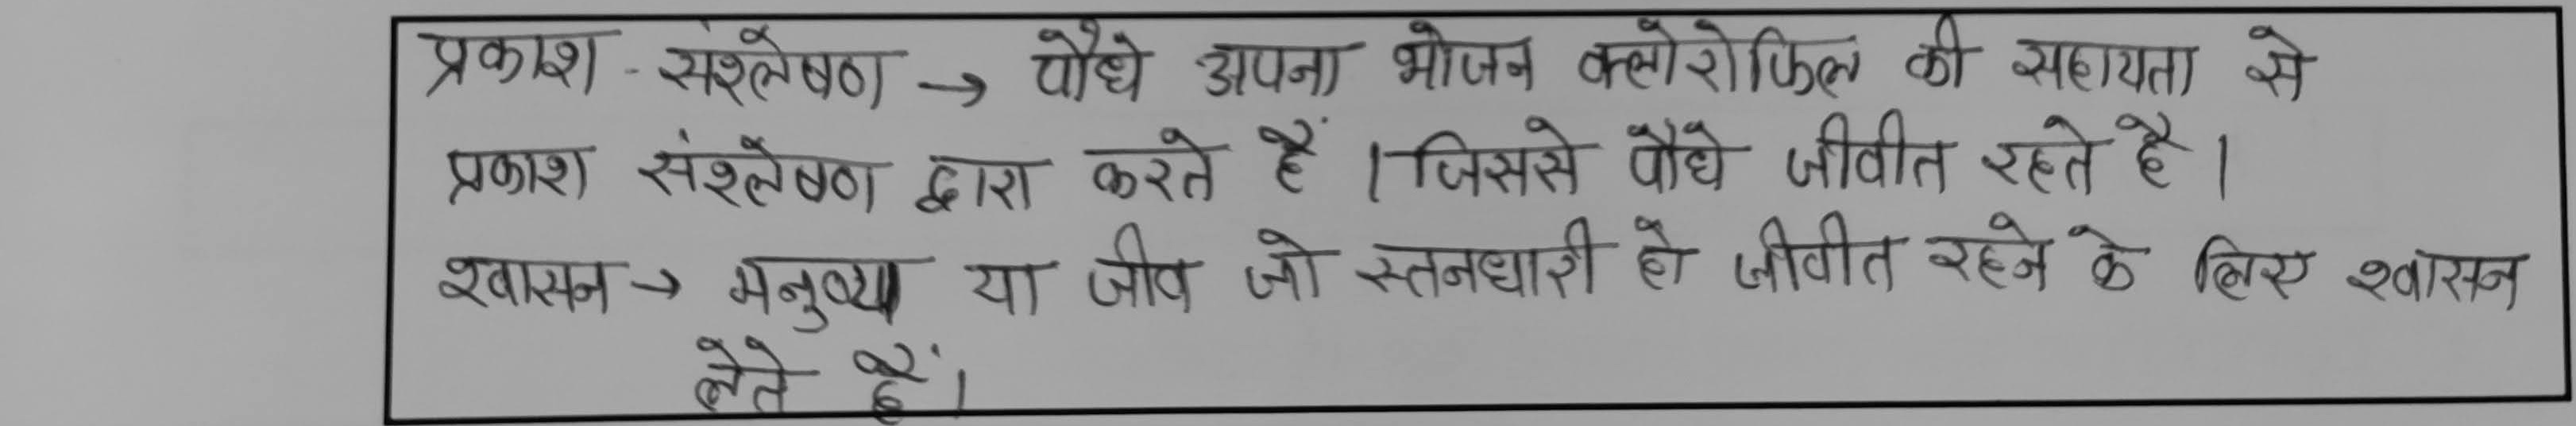 प्रकाश - संश्लेषण → पौधे अपना भोजन क्लोरोफिल की सहायता से
प्रकाश संश्लेषण द्वारा करते हैं । जिससे पौधे जीवीत रहते है ।
श्वासन → मनुष्य या जीव जो स्तनधारी हो जीवीत रहने के लिए श्वासन
लेते हैं ।